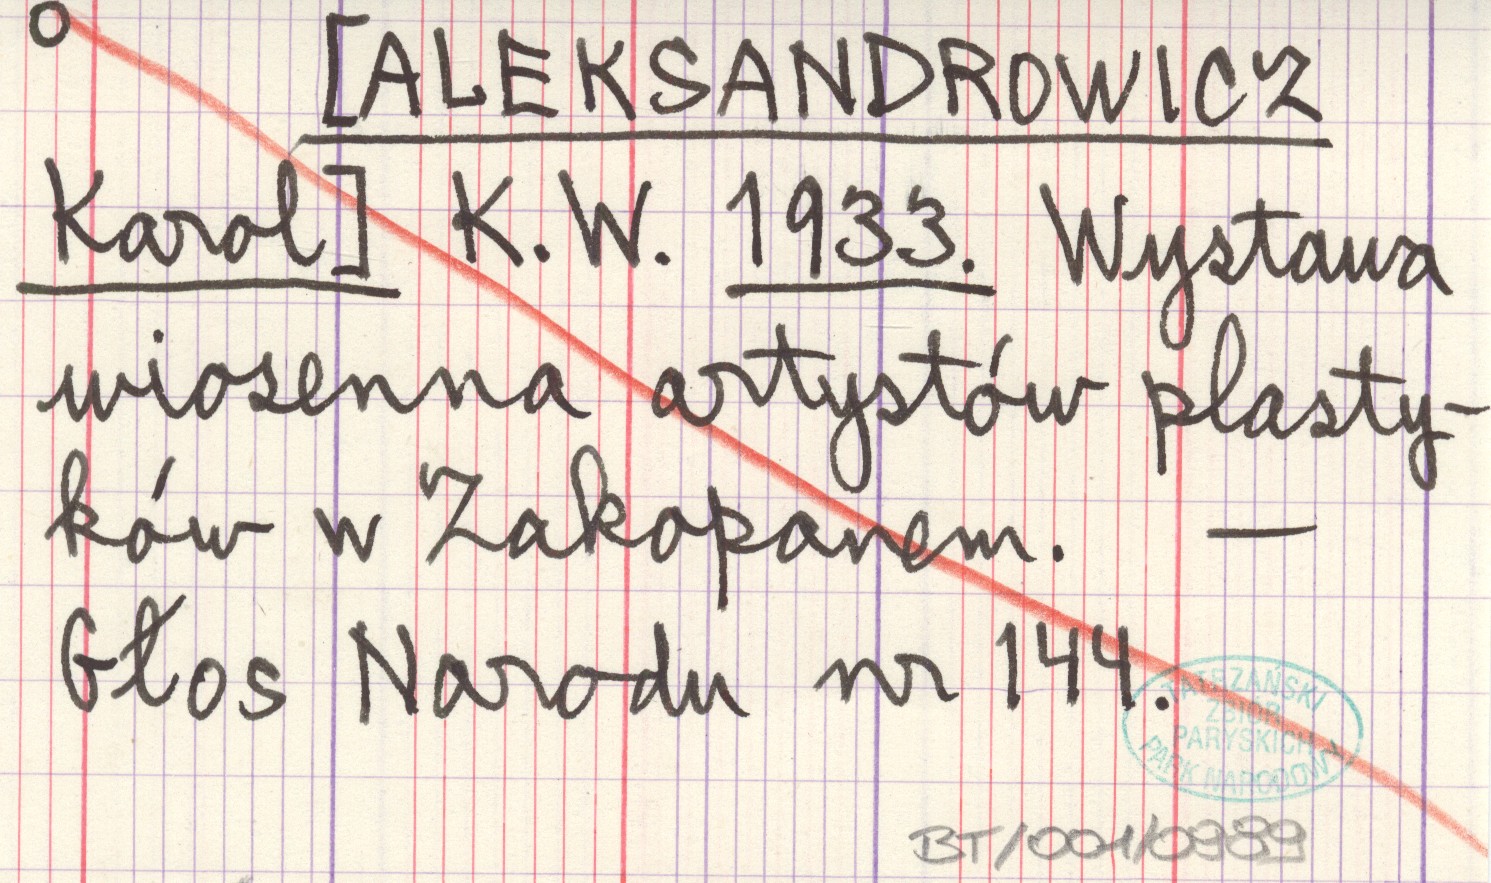 o [ALEKSANDROWICZ
Karol] K.W. 1933. Wystawa
wiosenna artystów plasty-
ków w Zakopanem. —
Głos Narodu nr 144.
TATRZAŃSKI
ZBIÓR
PARYSKICH
PARK NARODOWY
BT/001/0989